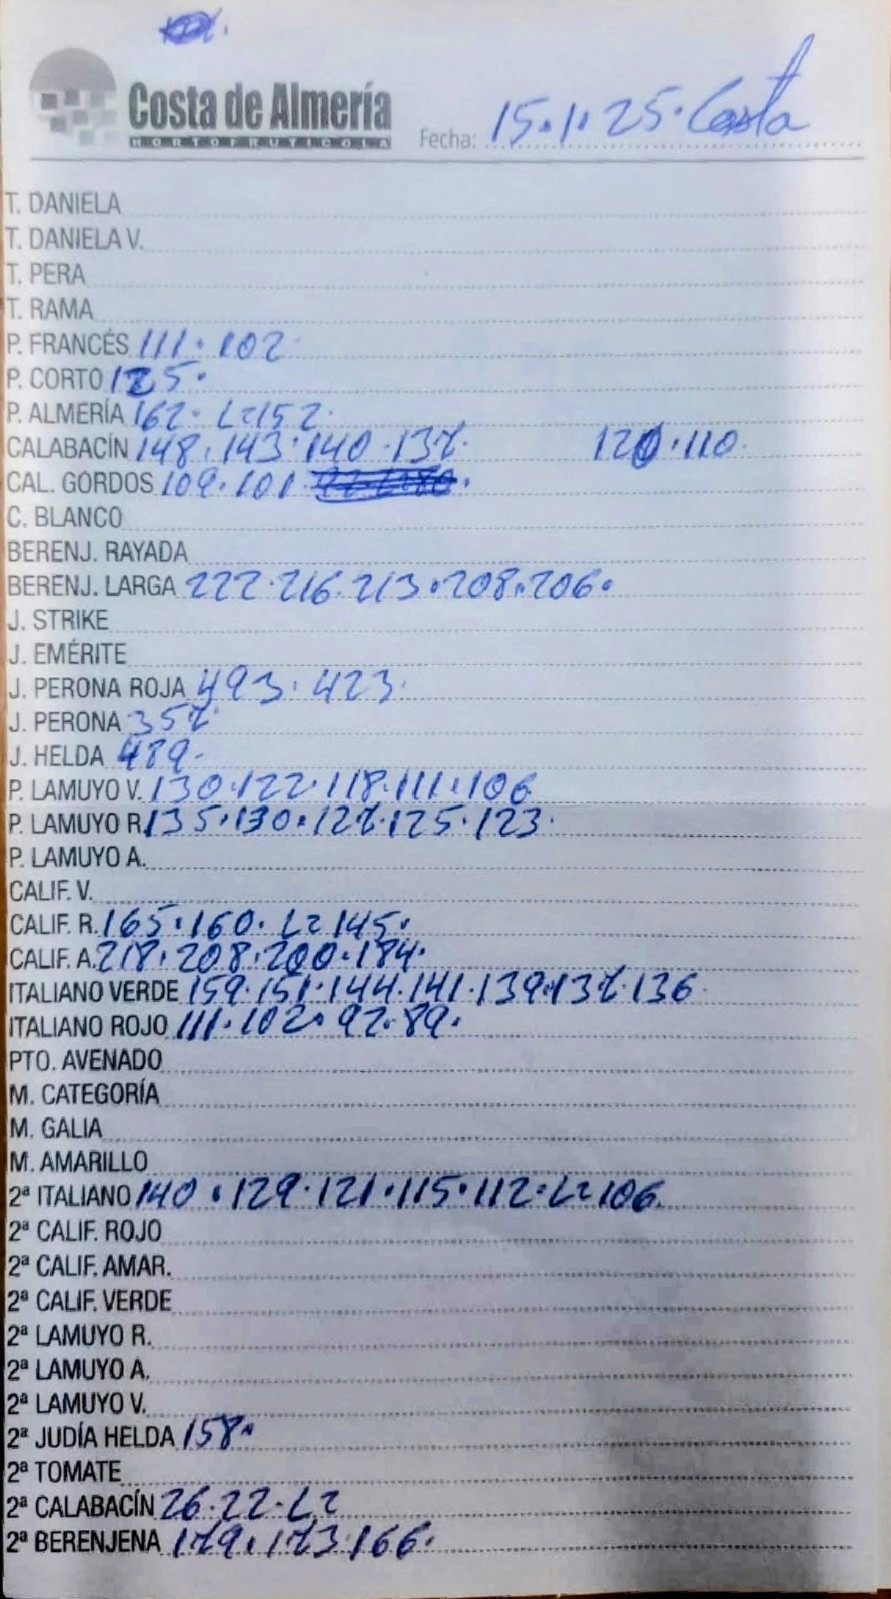 Costa de Almería
HORTOFRUTICOLA
Fecha: 15.1.25. Costa
T. DANIELA
T. DANIELA V.
T. PERA
T. RAMA
P. FRANCÉS 111. 102
P. CORTO 125.
P. ALMERÍA 162. L=152.
CALABACÍN 148. 143. 140. 137. 120. 110.
CAL. GORDOS 109. 101.
C. BLANCO
BERENJ. RAYADA
BERENJ. LARGA 222. 216. 213. 208. 206.
J. STRIKE
J. EMÉRITE
J. PERONA ROJA 493. 423.
J. PERONA 357
J. HELDA 489.
P. LAMUYO V. 130. 122. 118. 111. 106
P. LAMUYO R. 135. 130. 127. 125. 123.
P. LAMUYO A.
CALIF. V.
CALIF. R. 165. 160. L=145.
CALIF. A. 218. 208. 200. 184.
ITALIANO VERDE 159. 151. 144. 141. 139. 137. 136
ITALIANO ROJO 111. 102. 92. 89.
PTO. AVENADO
M. CATEGORÍA
M. GALIA
M. AMARILLO
2ª ITALIANO 140. 129. 121. 115. 112. L=106.
2ª CALIF. ROJO
2ª CALIF. AMAR.
2ª CALIF. VERDE
2ª LAMUYO R.
2ª LAMUYO A.
2ª LAMUYO V.
2ª JUDÍA HELDA 158.
2ª TOMATE
2ª CALABACÍN 26. 22. L=
2ª BERENJENA 179. 173. 166.